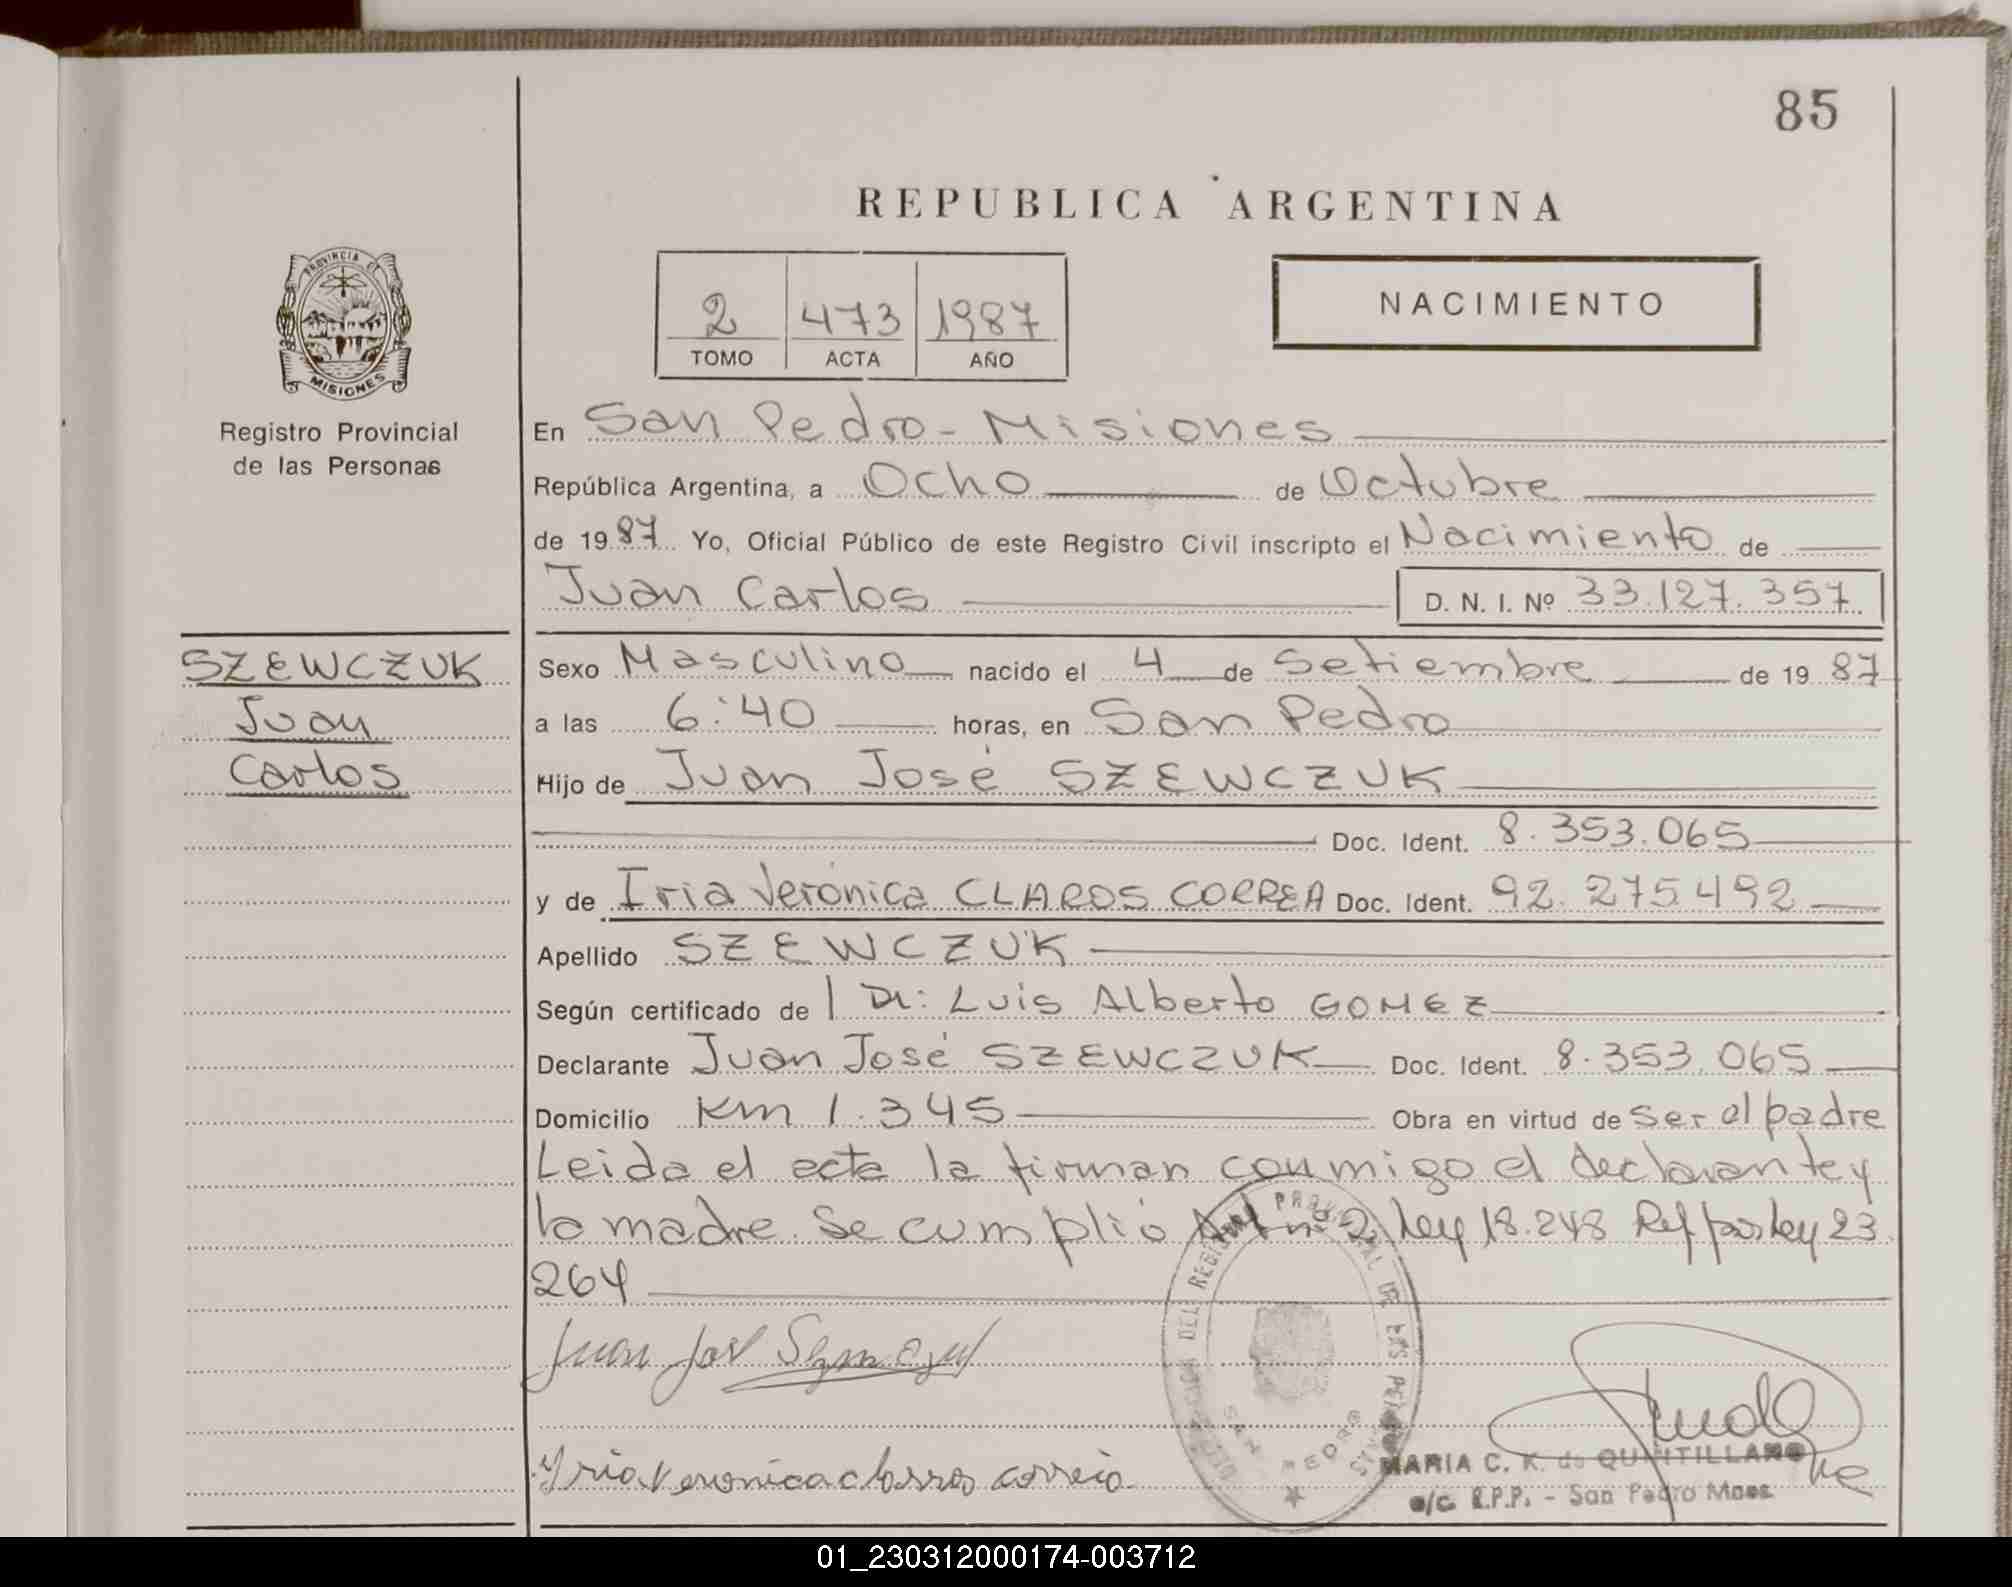 85
REPUBLICA ARGENTINA
PROVINCIA DE
MISIONES
Registro Provincial
de las Personas
2 473 1987
TOMO ACTA AÑO
NACIMIENTO
En San Pedro - Misiones
República Argentina, a Ocho de Octubre
de 1987 Yo, Oficial Público de este Registro Civil inscripto el Nacimiento de
Juan Carlos D. N. I. Nº 33.127.357
SZEWCZUK
Juan
Carlos
Sexo Masculino nacido el 4 de Setiembre de 19 87
a las 6:40 horas, en San Pedro
Hijo de Juan José SZEWCZUK
Doc. Ident. 8.353.065
y de Iria Verónica CLAROS CORREA Doc. Ident. 92.275.492
Apellido SZEWCZUK
Según certificado de Dr: Luis Alberto GOMEZ
Declarante Juan José SZEWCZUK Doc. Ident. 8.353.065
Domicilio Km 1.345 Obra en virtud de ser el padre
Leida el acta la firman conmigo el declarante y
la madre. Se cumplió Art nº 2, Ley 18.248 Ref por Ley 23.
264
DEL REGISTRO PROVINCIAL DE LAS PERSONAS
SAN PEDRO
Juan José
Yria Veronica claros correia
MARIA C. K. de QUINTILLANO
a/c. R.P.P. - San Pedro Mnes.
01_230312000174-003712